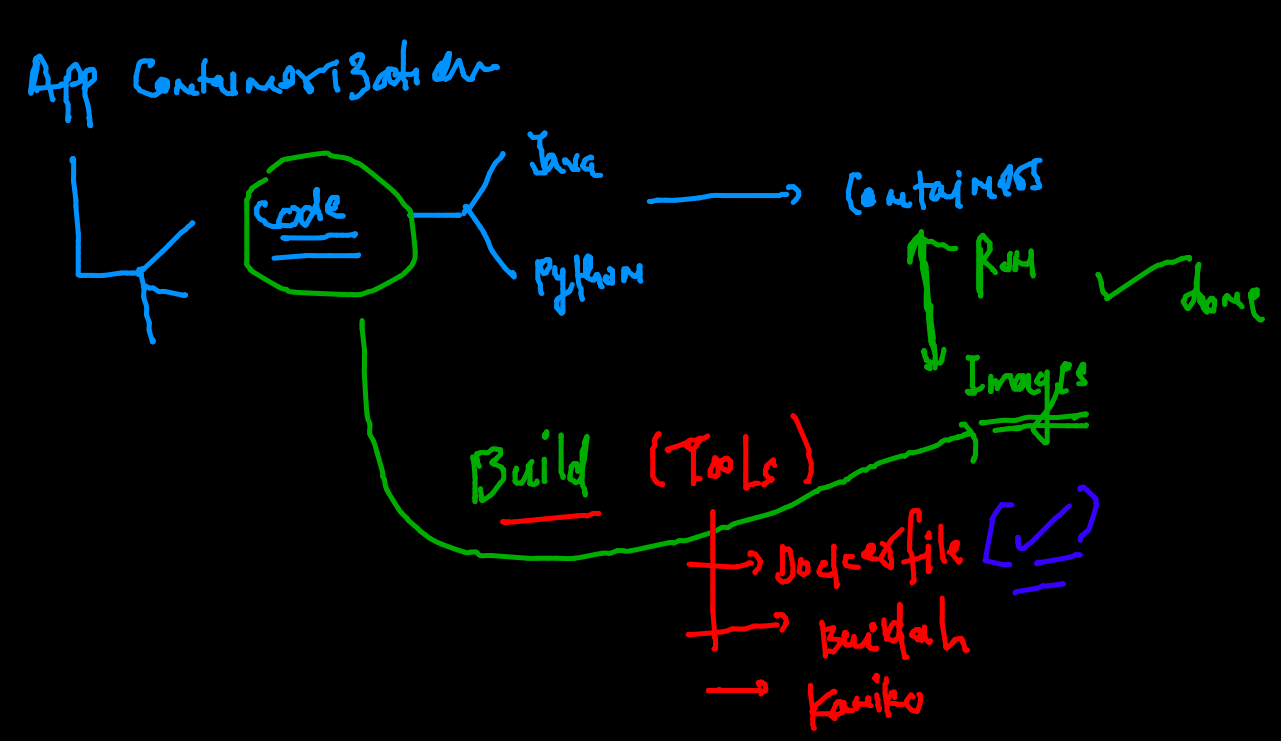 App Containerization
Java
Code
Containers
Python
Run
done
Images
Build (Tools)
Dockerfile
Buildah
Kaniko